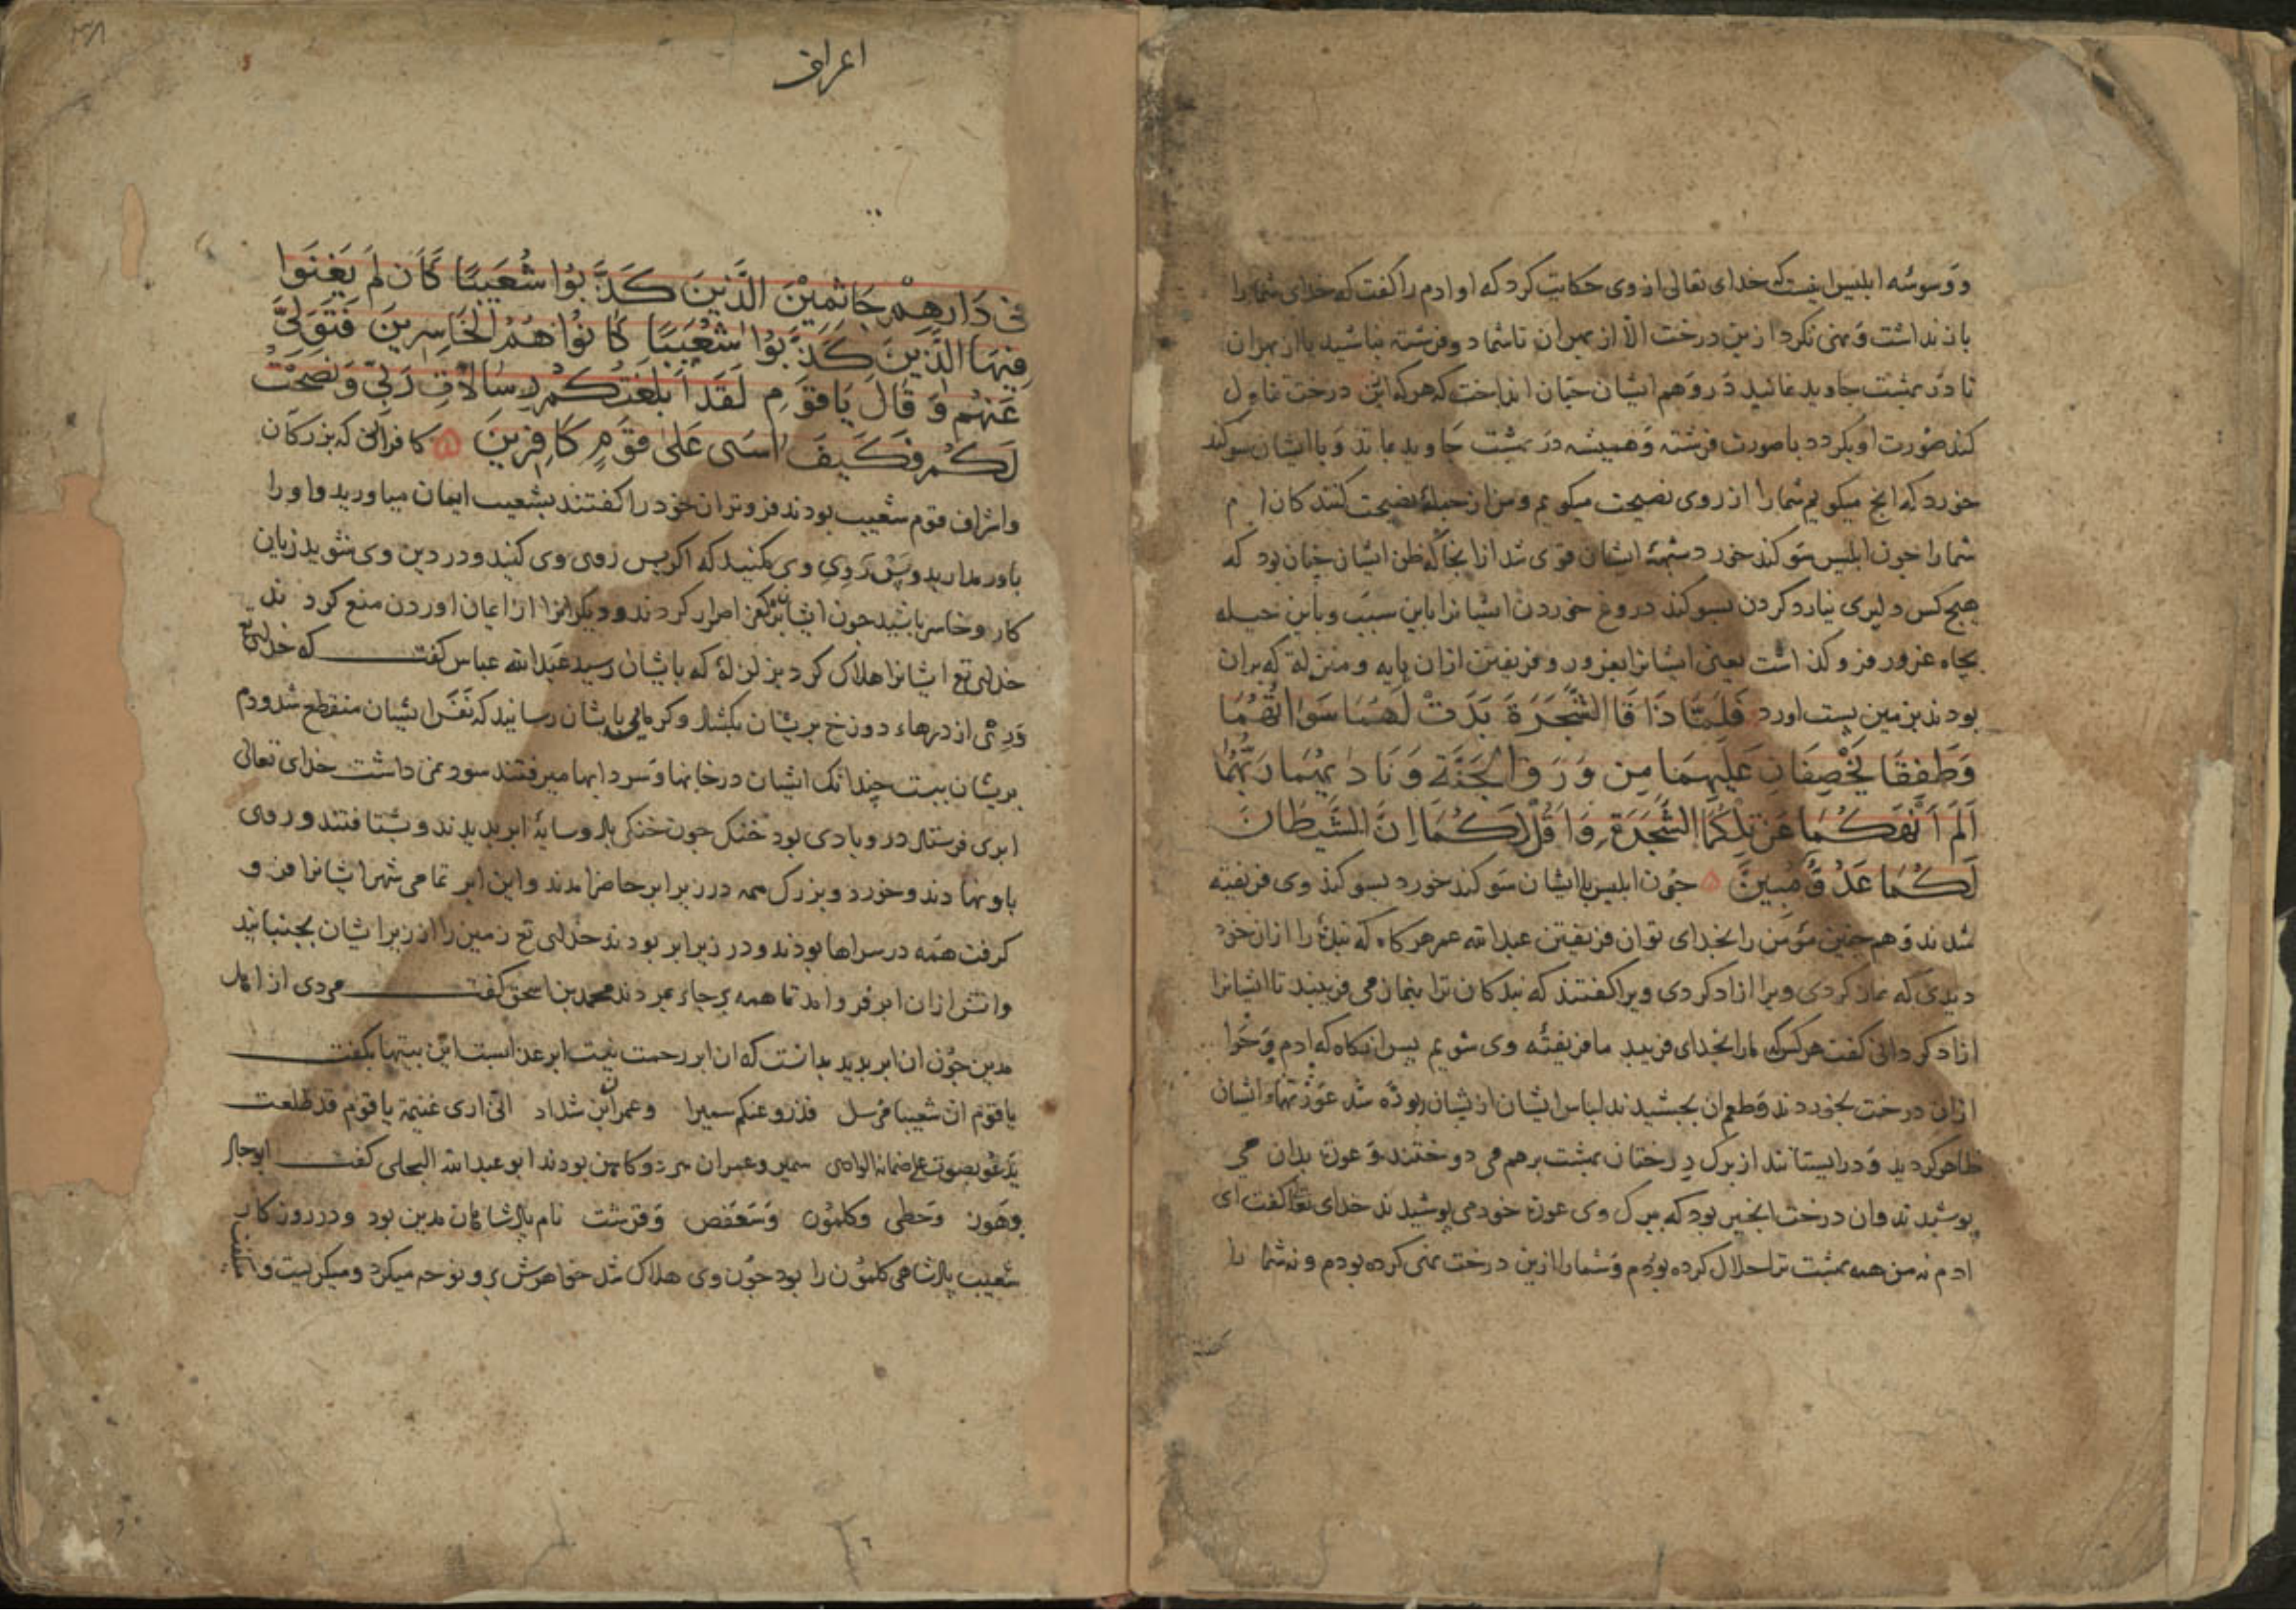 و وسوسه ابلیس اینست که خدای تعالی از وی حکایت کرد که او ادم را گفت که خدای شما را
باز نداشت و نهی نکرد ازین درخت الا از بهر ان تا شما دو فرشته نباشید یا از بهر ان
تا در بهشت جاوید نمانید در وهم ایشان چنان انداخت که هر که ازین درخت تناول
کند صورت او بکردد با صورت فرشته و همیشه در بهشت جاوید بماند و با ایشان سوکند
خورد که انج میکویم شما را از روی نصیحت میکویم و من از جمله نصیحت کنندکان ام
شما را جون ابلیس سوکند خورد شبههٔ ایشان قوی شد از انجا که ظن ایشان جنان بود که
هیچ کس دلیری نیارد کردن بسوکند دروغ خوردن ایشانرا باین سبب و باین حیله
بجاه غرور فرو کذاشت یعنی ایشانرا بغرور و فریفتن ازان پایه و منزلة که بران
بودند بزمین پست اورد فَلَمَّا ذَاقَا الشَّجَرَةَ بَدَتْ لَهُمَا سَوْاتُهُمَا
وَطَفِقَا يَخْصِفَانِ عَلَيْهِمَا مِن وَرَقِ الْجَنَّةِ وَنَادٰيهُمَا رَبُّهُمَا
اَلَمْ اَنْهَكُمَا عَنْ تِلْكُمَا الشَّجَرَةِ وَاَقُلْ لَكُمَا اِنَّ الشَّيْطَانَ
لَكُمَا عَدُوٌّ مُبِينٌ ۵ جون ابلیس با ایشان سوکند خورد بسوکند وی فریفته
شدند و هم جنین مؤمن را بخدای توان فریفتن عبدالله عمر هرکاه که بندهٔ را ازان خود
دیدی که نماز کردی ویرا ازاد کردی ویرا کفتند که بندکان ترا بنماز می فریبند تا ایشانرا
ازاد کردانی کفت هر کس که ما را بخدای فریبد ما فریفتهٔ وی شویم پس انکاه که ادم و حوا
ازان درخت بخوردند و طعم ان بجشیدند لباس ایشان از یشان ربوده شد عورتهاء ایشان
ظاهر کردید و در ایستادند از برک درختان بهشت بر هم می دوختند و عورة بدان می
پوشیدند و ان درخت انجیر بود که ببرک وی عورة خود می پوشیدند خدای تعا کفت ای
ادم نه من همه بهشت ترا حلال کرده بودم و شما را ازین درخت نهی کرده بودم و نه شما را
اعراف
فِى دَارِهِمْ جَاثِمِيْنَ الَّذِينَ كَذَّبُوا شُعَيْبًا كَاَن لَم يَغْنَوا
فِيهَا الَّذِينَ كَذَّبُوا شُعَيْبًا كَانُوا هُمُ الْخَاسِرِينَ فَتَوَلَّىٰ
عَنْهُمْ وَقَالَ يَا قَوْمِ لَقَدْ اَبْلَغْتُكُمْ رِسَالَاتِ رَبِّى وَنَصَحْتُ
لَكُمْ فَكَيْفَ اٰسٰى عَلىٰ قَوْمٍ كَافِرِينَ ۵ کافرانی که بزرکان
و اشراف قوم شعیب بودند فروتران خود را کفتند بشعیب ایمان میاورید و او را
باور مدارید و پس روی وی مکنید که اکر پس روی وی کنید و در دین وی شوید زیان
کار و خاسر باشید جون ایشان بر کفر اصرار کردند و دیکرانرا از ایمان اوردن منع کردند
خدای تع ایشانرا هلاک کرد بزلزلهٔ که بایشان رسید عبدالله عباس کفت که خدای تع
دری از درهاء دوزخ بریشان بکشاد و کرمایی بایشان رسانید که نفس ایشان منقطع شد و دم
بریشان ببست چندانک ایشان در خانها و سردابها میرفتند سود نمی داشت خدای تعالی
ابری فرستاد درو بادی بود خنک جون خنکی باد و سایهٔ ابر بدیدند و بشتافتند و روی
باو نهادند و خورد و بزرک همه در زیر ابر حاضر امدند و این ابر تمامی شهر ایشانرا فرو
کرفت همه در سراها بودند و در زیر ابر بودند خدای تع زمین را از زیر ایشان بجنبانید
و اتش ازان ابر فرو امد تا همه بر جاء بمردند محمد بن اسحق کفت مردی از اهل
مدین جون ان ابر بدید بدانست که ان ابر رحمت نیست ابر عذابست این بیتها بکفت
یا قوم ان شعیبا مرسل فذروا عنکم سمیرا و عمران بن شداد انی اری غیمة یا قوم قد طلعت
تدعو بصوت علی ضمانه الوادی سمیر و عمران مر دو کاهن بودند ابو عبدالله البجلی کفت ابوجاد
وهوز وحطی وکلمون وسعفص وقرشت نام پادشاهان مدین بود و در روزکار
شعیب پادشاهی کلمون را بود جون وی هلاک شد خواهرش برو نوحه میکرد و میکریست و میکفت